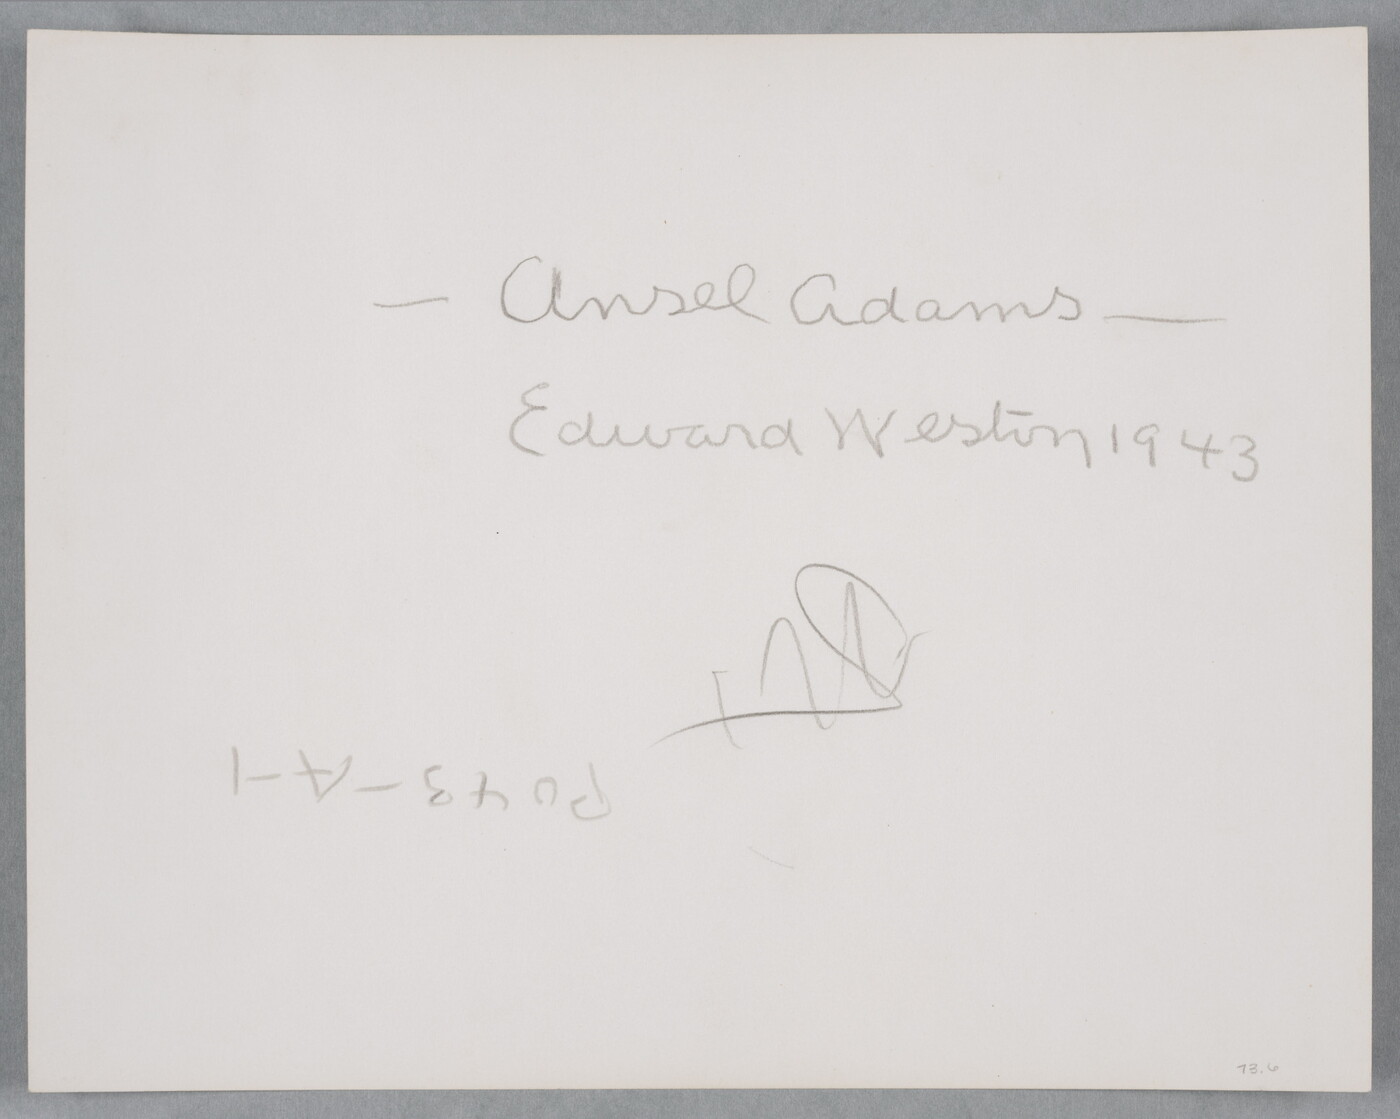 — Ansel Adams —
Edward Weston 1943
PO43-A-1
73.6